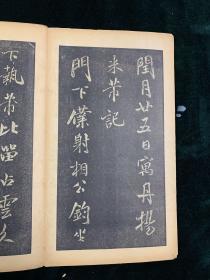 閏月廿五日寓丹楊
米芾記
門下僕射相公鈞坐
下執芾比留占雲久